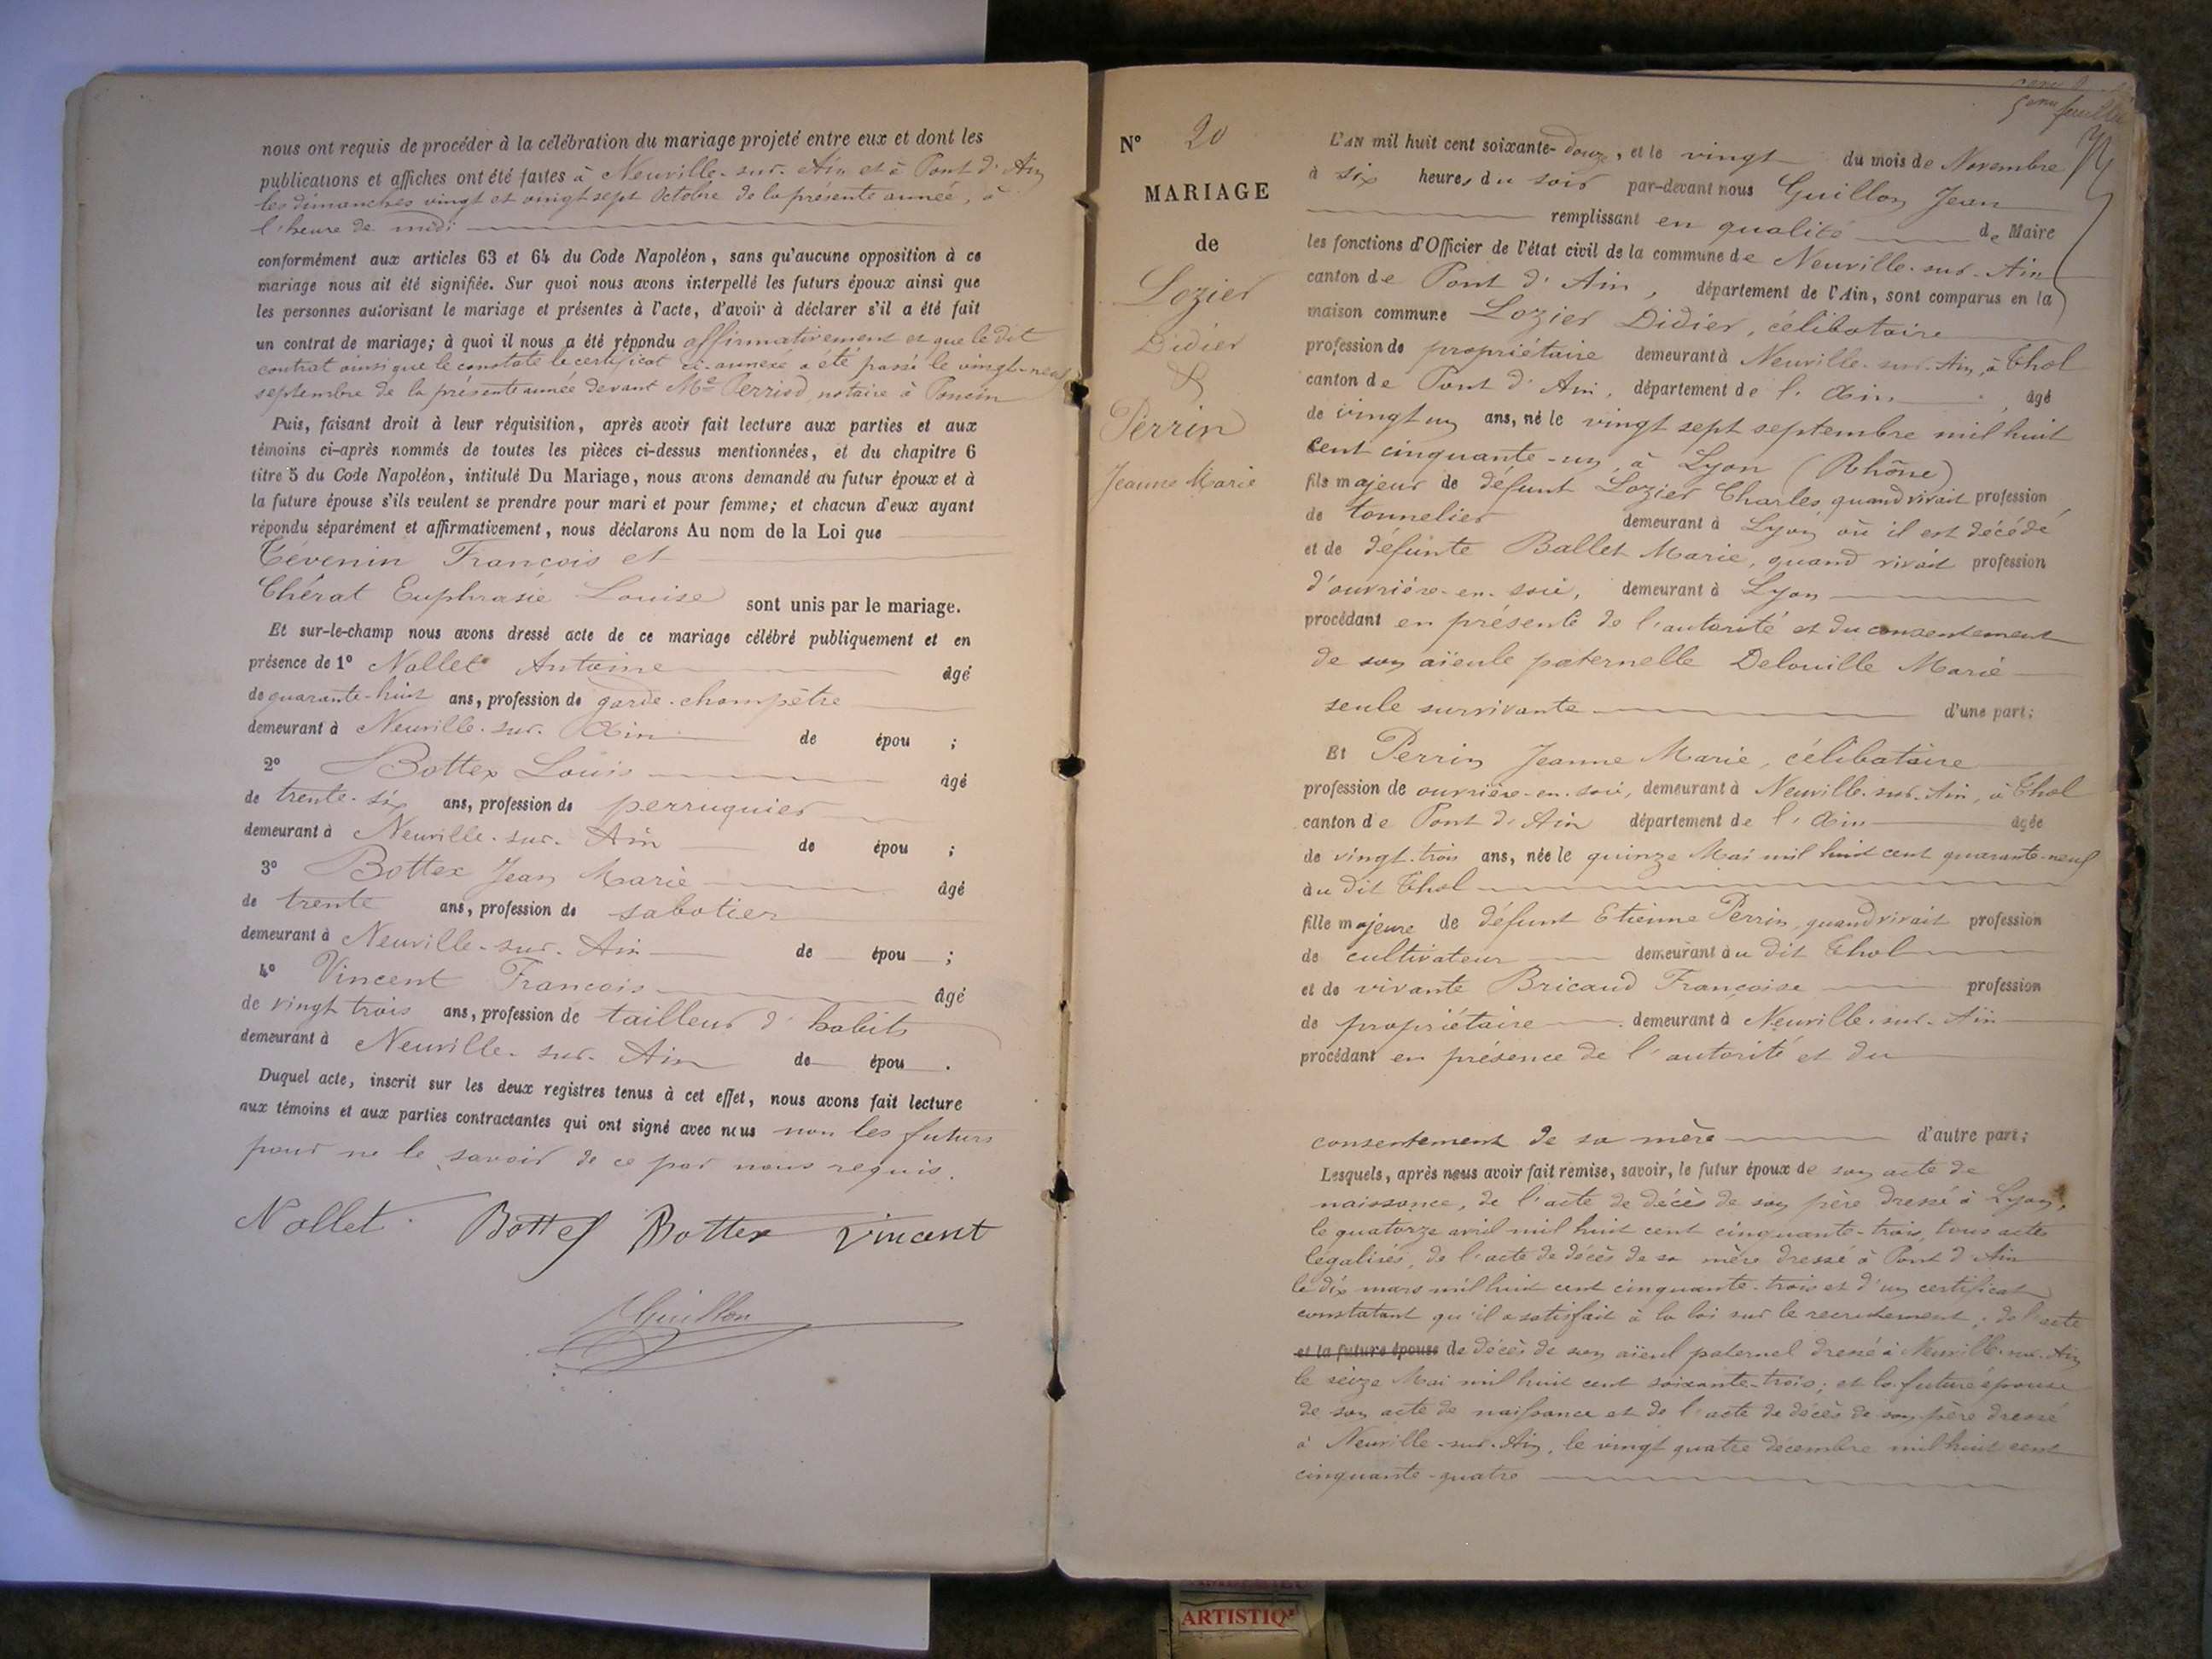 nous ont requis de procéder à la célébration du mariage projeté entre eux et dont les
publications et affiches ont été faites à Neuville-sur-Ain et à Pont d'Ain
les dimanches vingt et vingt sept Octobre de la présente année, à
l'heure de midi
conformément aux articles 63 et 64 du Code Napoléon, sans qu'aucune opposition à ce
mariage nous ait été signifiée. Sur quoi nous avons interpellé les futurs époux ainsi que
les personnes autorisant le mariage et présentes à l'acte, d'avoir à déclarer s'il a été fait
un contrat de mariage; à quoi il nous a été répondu affirmativement et que le dit
contrat ainsi que le constate le certificat ci-annexé a été passé le vingt-neuf
septembre de la présente année devant Me Perriod notaire à Poncin
Puis, faisant droit à leur réquisition, après avoir fait lecture aux parties et aux
témoins ci-après nommés de toutes les pièces ci-dessus mentionnées, et du chapitre 6
titre 5 du Code Napoléon, intitulé Du Mariage, nous avons demandé au futur époux et à
la future épouse s'ils veulent se prendre pour mari et pour femme; et chacun d'eux ayant
répondu séparément et affirmativement, nous déclarons Au nom de la Loi que
Tévenin François et
Chérat Euphrasie Louise sont unis par le mariage.
Et sur-le-champ nous avons dressé acte de ce mariage célébré publiquement et en
présence de 1° Nallet Antoine âgé
de quarante-huit ans, profession de garde-champêtre
demeurant à Neuville-sur-Ain de épou ;
2° Bottex Louis âgé
de trente-six ans, profession de perruquier
demeurant à Neuville-sur-Ain de épou ;
3° Bottex Jean Marie âgé
de trente ans, profession de sabotier
demeurant à Neuville-sur-Ain de épou ;
4° Vincent François âgé
de vingt trois ans, profession de tailleur d'habits
demeurant à Neuville-sur-Ain de épou .
Duquel acte, inscrit sur les deux registres tenus à cet effet, nous avons fait lecture
aux témoins et aux parties contractantes qui ont signé avec nous non les futurs
pour ne le savoir de ce par nous requis.
Nallet Bottex Bottex Vincent
Guillon
5eme feuille
N° 20
MARIAGE
de
Lozier
Didier
&
Perrin
Jeanne Marie
L'AN mil huit cent soixante-douze, et le vingt du mois de Novembre
à six heures du soir par-devant nous Guillon Jean
remplissant en qualité de Maire
les fonctions d'Officier de l'état civil de la commune de Neuville-sur-Ain
canton de Pont d'Ain, département de l'Ain, sont comparus en la
maison commune Lozier Didier, célibataire
profession de propriétaire demeurant à Neuville-sur-Ain, à Thol
canton de Pont d'Ain, département de l'Ain, âgé
de vingt un ans, né le vingt sept septembre mil huit
cent cinquante-un, à Lyon (Rhône)
fils majeur de défunt Lozier Charles, quand vivait profession
de tonnelier demeurant à Lyon où il est décédé
et de défunte Ballet Marie, quand vivait profession
d'ouvrière-en-soie, demeurant à Lyon
procédant en présence de l'autorité et du consentement
de son aïeule paternelle Delouille Marie
seule survivante d'une part;
Et Perrin Jeanne Marie, célibataire
profession de ouvrière-en-soie, demeurant à Neuville-sur-Ain, à Thol
canton de Pont d'Ain département de l'Ain âgée
de vingt-trois ans, née le quinze Mai mil huit cent quarante-neuf
au dit Thol
fille majeure de défunt Etienne Perrin, quand vivait profession
de cultivateur demeurant au dit Thol
et de vivante Bricaud Françoise profession
de propriétaire demeurant à Neuville-sur-Ain
procédant en présence de l'autorité et du
consentement de sa mère d'autre part;
Lesquels, après nous avoir fait remise, savoir, le futur époux de son acte de
naissance, de l'acte de décès de son père dressé à Lyon,
le quatorze avril mil huit cent cinquante-trois, tous actes
légalisés, de l'acte de décès de sa mère dressé à Pont d'Ain
le dix mars mil huit cent cinquante-trois et d'un certificat
constatant qu'il a satisfait à la loi sur le recrutement; de l'acte
et la future épouse de décès de son aïeul paternel dressé à Neuville-sur-Ain
le seize Mai mil huit cent soixante-trois; et la future épouse
de son acte de naissance et de l'acte de décès de son père dressé
à Neuville-sur-Ain, le vingt quatre décembre mil huit cent
cinquante-quatre
ARTISTIQ